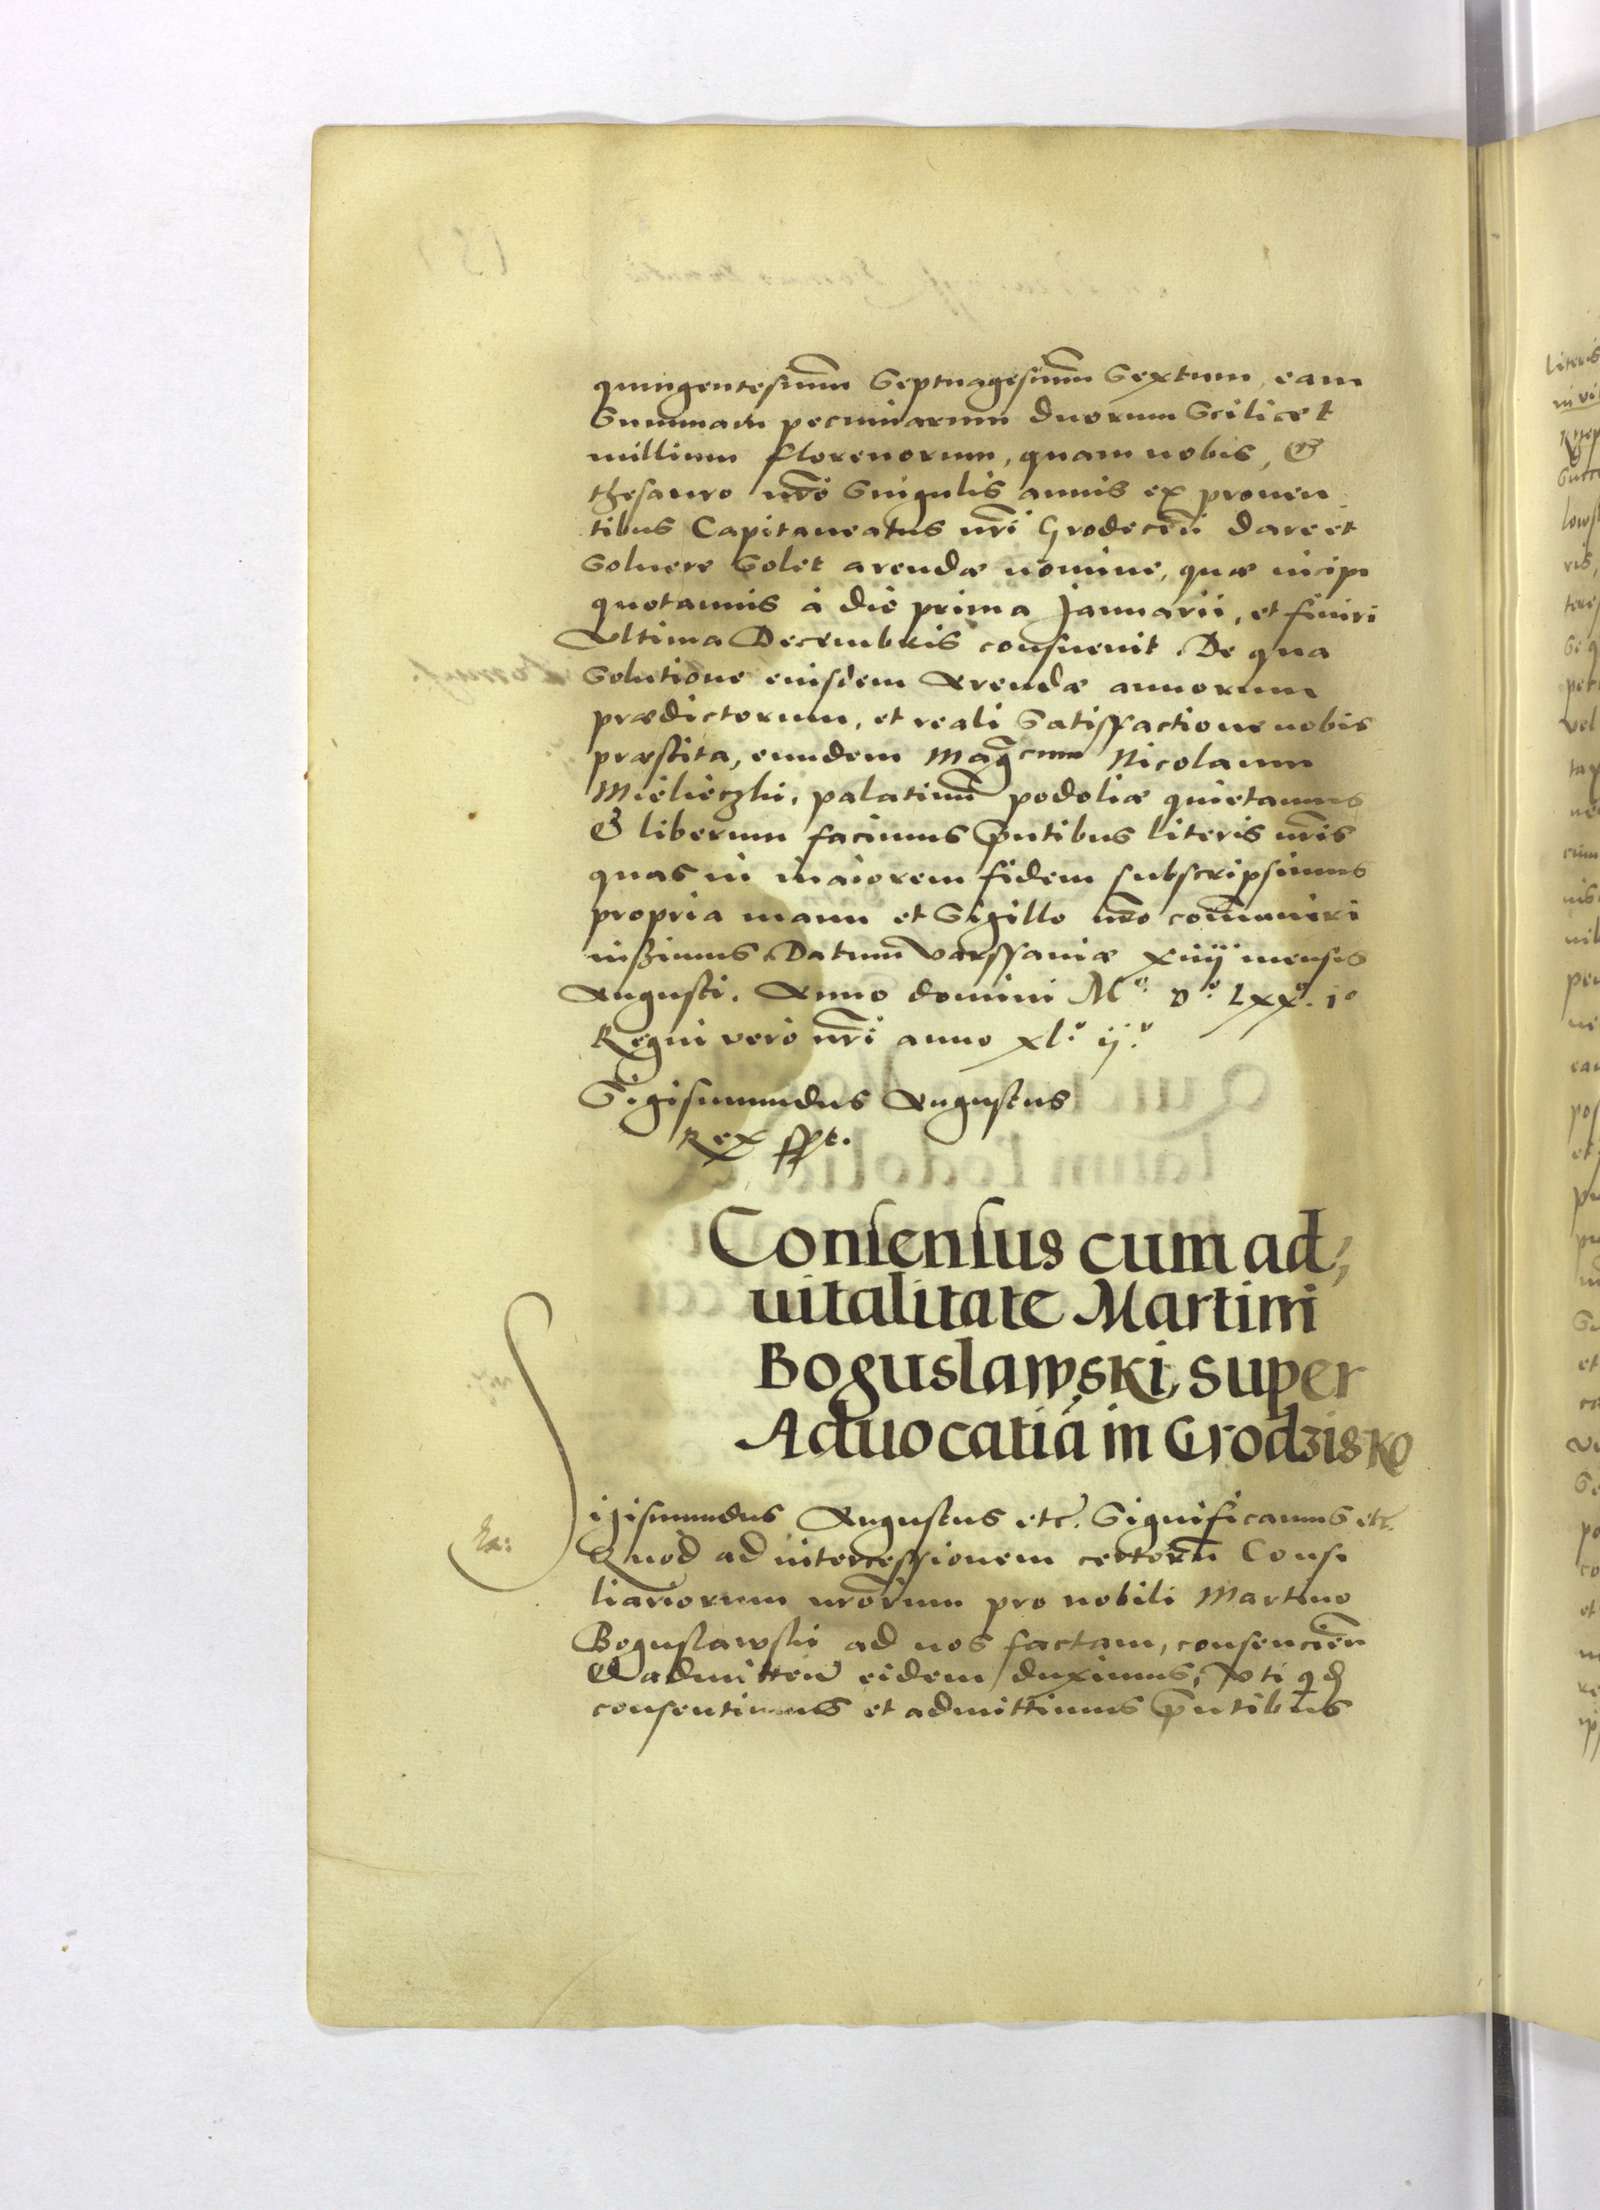 quingentesimũ Septuagesimũ Sextum, eam
Summam pecuniarum duorum Scilicet
millium florenorum, quam nobis, &
thesauro nr̃o Singulis annis ex prouen
tibus Capitaneatus nr̃i Grodeceñ dare et
Soluere Solet arendæ nomine, quæ incipi
quotannis à die prima Januarii, et finiri
Vltima Decembris consueuit. De qua
Solutione eiusdem Arendæ annorum
prædictorum, et reali Satisfactione nobis
præstita, eundem Mag̃cum Nicolaum
Mieliečzki, palatinũ podoliæ quietamus
& liberum facimus p̃ntibus literis nr̃is
quas in maiorem fidem subscripsimus
propria manu et Sigillo nr̃o com̃uniri
iußimus Datum Varssauiæ xiiij mensis
Augusti. Anno domini Mº. Dº. Lxxº. iº
Regni vero nr̃i anno xl.º ij.º
Sigismundus Augustus
Rex sspt.
Consensus cum ad,
uitalitate Martini
Boguslawski, super
Aduocatiã in Grodzisko
Sigismundus Augustus etc. Significamus etc.
Quod ad intercessionem certorũ Consi
liariorum nr̃orum pro nobili Martino
Boguslawski ad nos factam, consencieñ
& admitteñ eidem duximus, Vti qd̃
consentimus et admittimus p̃ntibus